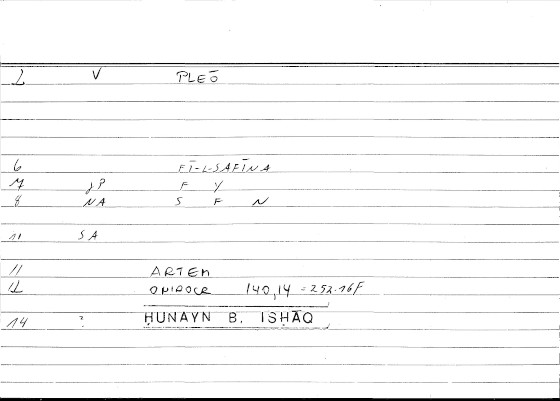 1 V PLEŌ
6 FĪ-L-SAFĪNA
7 gP F Y
8 NA S F N
10 SA
11 ARTEM
12 ONIROCR 140,14 = 252.16F
14 ? ḤUNAYN B. ISḤĀQ